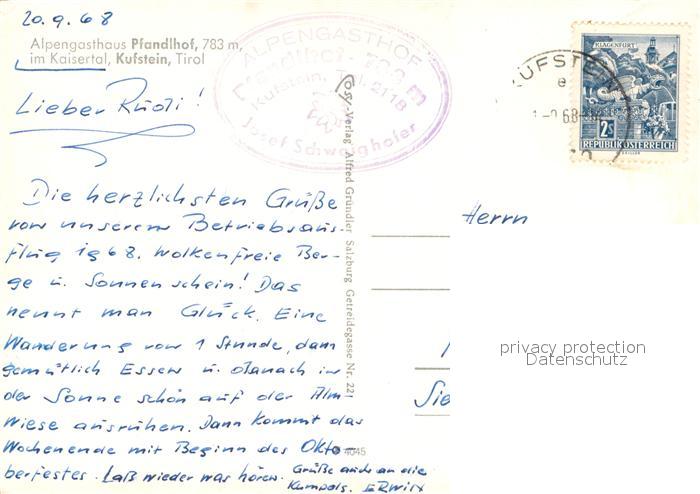 20.9.68
Alpengasthaus Pfandlhof, 783 m,
im Kaisertal, Kufstein, Tirol
ALPENGASTHOF
Kufstein, Tel. 2118
Josef Schwaighofer
KLAGENFURT
2S
REPUBLIK ÖSTERREICH
KUFSTEIN
Lieber Rudi!
Die herzlichsten Grüße
von unserem Betriebsaus-
flug 1968. Wolkenfreie Ber-
ge u. Sonnenschein! Das
nennt man Glück. Eine
Wanderung von 1 Stunde, dann
gemütlich Essen u. danach in
der Sonne schön auf der Alm-
wiese ausruhen. Dann kommt das
Wochenende mit Beginn des Okto-
berfestes. Laß wieder was hören.
Grüße auch an die
Kumpels. ERWIN
Cosy-Verlag Alfred Gründler Salzburg Getreidegasse Nr. 22
4045
Herrn
Sie
privacy protection
Datenschutz